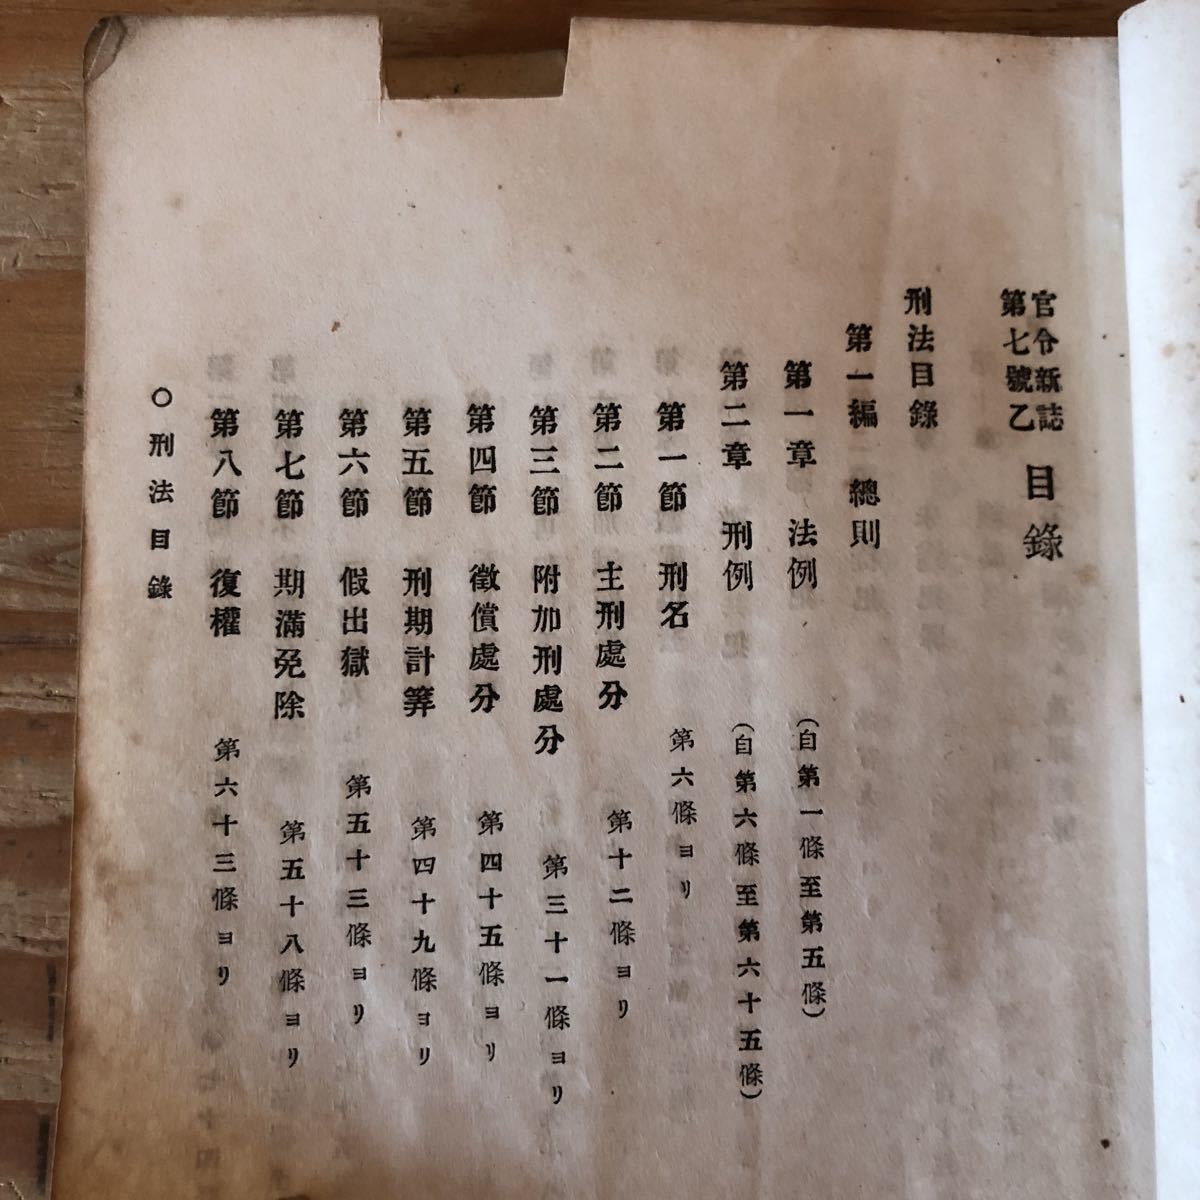 官令新誌
第七號乙 目錄
刑法目錄
第一編 總則
第一章 法例 (自第一條至第五條)
第二章 刑例 (自第六條至第六十五條)
第一節 刑名 第六條ヨリ
第二節 主刑處分 第十二條ヨリ
第三節 附加刑處分 第三十一條ヨリ
第四節 徵償處分 第四十五條ヨリ
第五節 刑期計筭 第四十九條ヨリ
第六節 假出獄 第五十三條ヨリ
第七節 期滿免除 第五十八條ヨリ
第八節 復權 第六十三條ヨリ
○刑法目錄